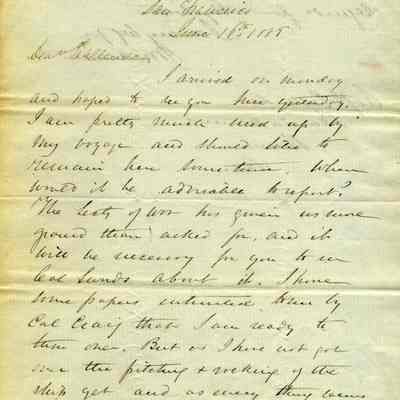 San Francisco
June 16th
Dear
I arrived on Monday
and hoped to see you here yesterday.
I am pretty much used up by
my voyage and should like to
remain here some time. When
would it be advisable to report?
The Secty of War has given us more
ground than asked for, and it
will be necessary for you to see
Col about it. I have
some papers intrusted to me by
Col Craig that I am ready to
turn over. But as I have not got
over the pitching & rocking of the
ship yet and as every thing seems